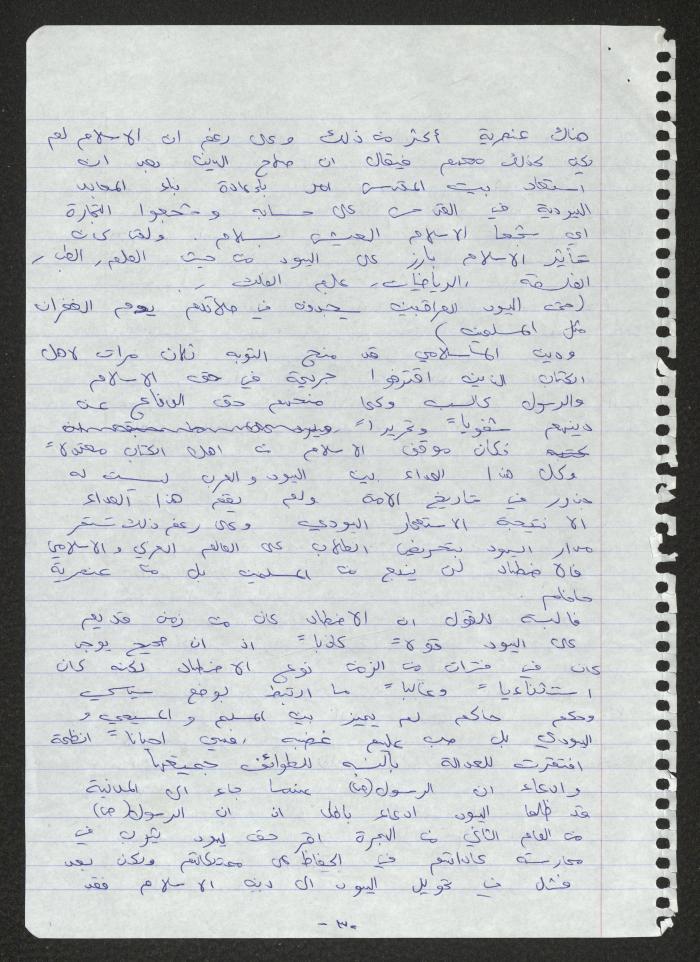 هناك عنصرية أكثر من ذلك وعلى رغم ان الاسلام لم
يكن كذلك معهم فيقال ان صلاح الدين بعد ان
استعاد بيت المقدس امر باعادة بناء المعابد
اليهودية في القدس على حسابه وشجعوا التجارة
اي شجعها الاسلام العيش بسلام. ولقد كان
تأثير الاسلام بارز على اليهود من حيث العلم، الطب،
الفلسفة، الرياضيات، علم الفلك،
(حتى اليهود العراقيين يسجدون في صلاتهم يوم الغفران
مثل المسلمين)
والدين الاسلامي قد منح التوبة ثلاث مرات لأهل
الكتاب الذين اقترفوا جريمة في حق الاسلام
والرسول كالسب وكما منحهم حق الدفاع عن
دينهم شفوياً وتحريراً
فكان موقف الاسلام من اهل الكتاب معتدلاً
وكل هذا العداء بين اليهود والعرب ليست له
جذور في تاريخ الامة ولم يقم هذا العداء
الا نتيجة الاستعمار اليهودي وعلى رغم ذلك تستمر
مدارس اليهود بتحريض الطلاب على العالم العربي والاسلامي
فالاضطهاد لن ينبع من المسلمين بل من عنصرية
حاخام
فالبسبة للقول ان الاضطهاد كان من زمن قديم
على اليهود قولاً كاذباً اذ ان صحيح يوجد
كان في فترات من الزمن نوع من الاضطهاد لكنه كان
استثنائياً وغالباً ما ارتبط بوضع سياسي
وحكم حاكم لم يميز بين المسلم والمسيحي و
اليهودي بل صب عليهم غضبه، ففي احيانا انظمة
افتقرت للعدالة بالنسبة للطوائف جميعها
وادعاء ان الرسول (ص) عندما جاء الى المدينة
قد ظلم اليهود ادعاء باطل اذ ان الرسول (ص)
من العام الثاني من الهجرة اقر حق يهود يثرب في
ممارسة عاداتهم في الحفاظ على ممتلكاتهم ولكن بعد
فشل في تحويل اليهود الى دين الاسلام فقد
- ٣٠